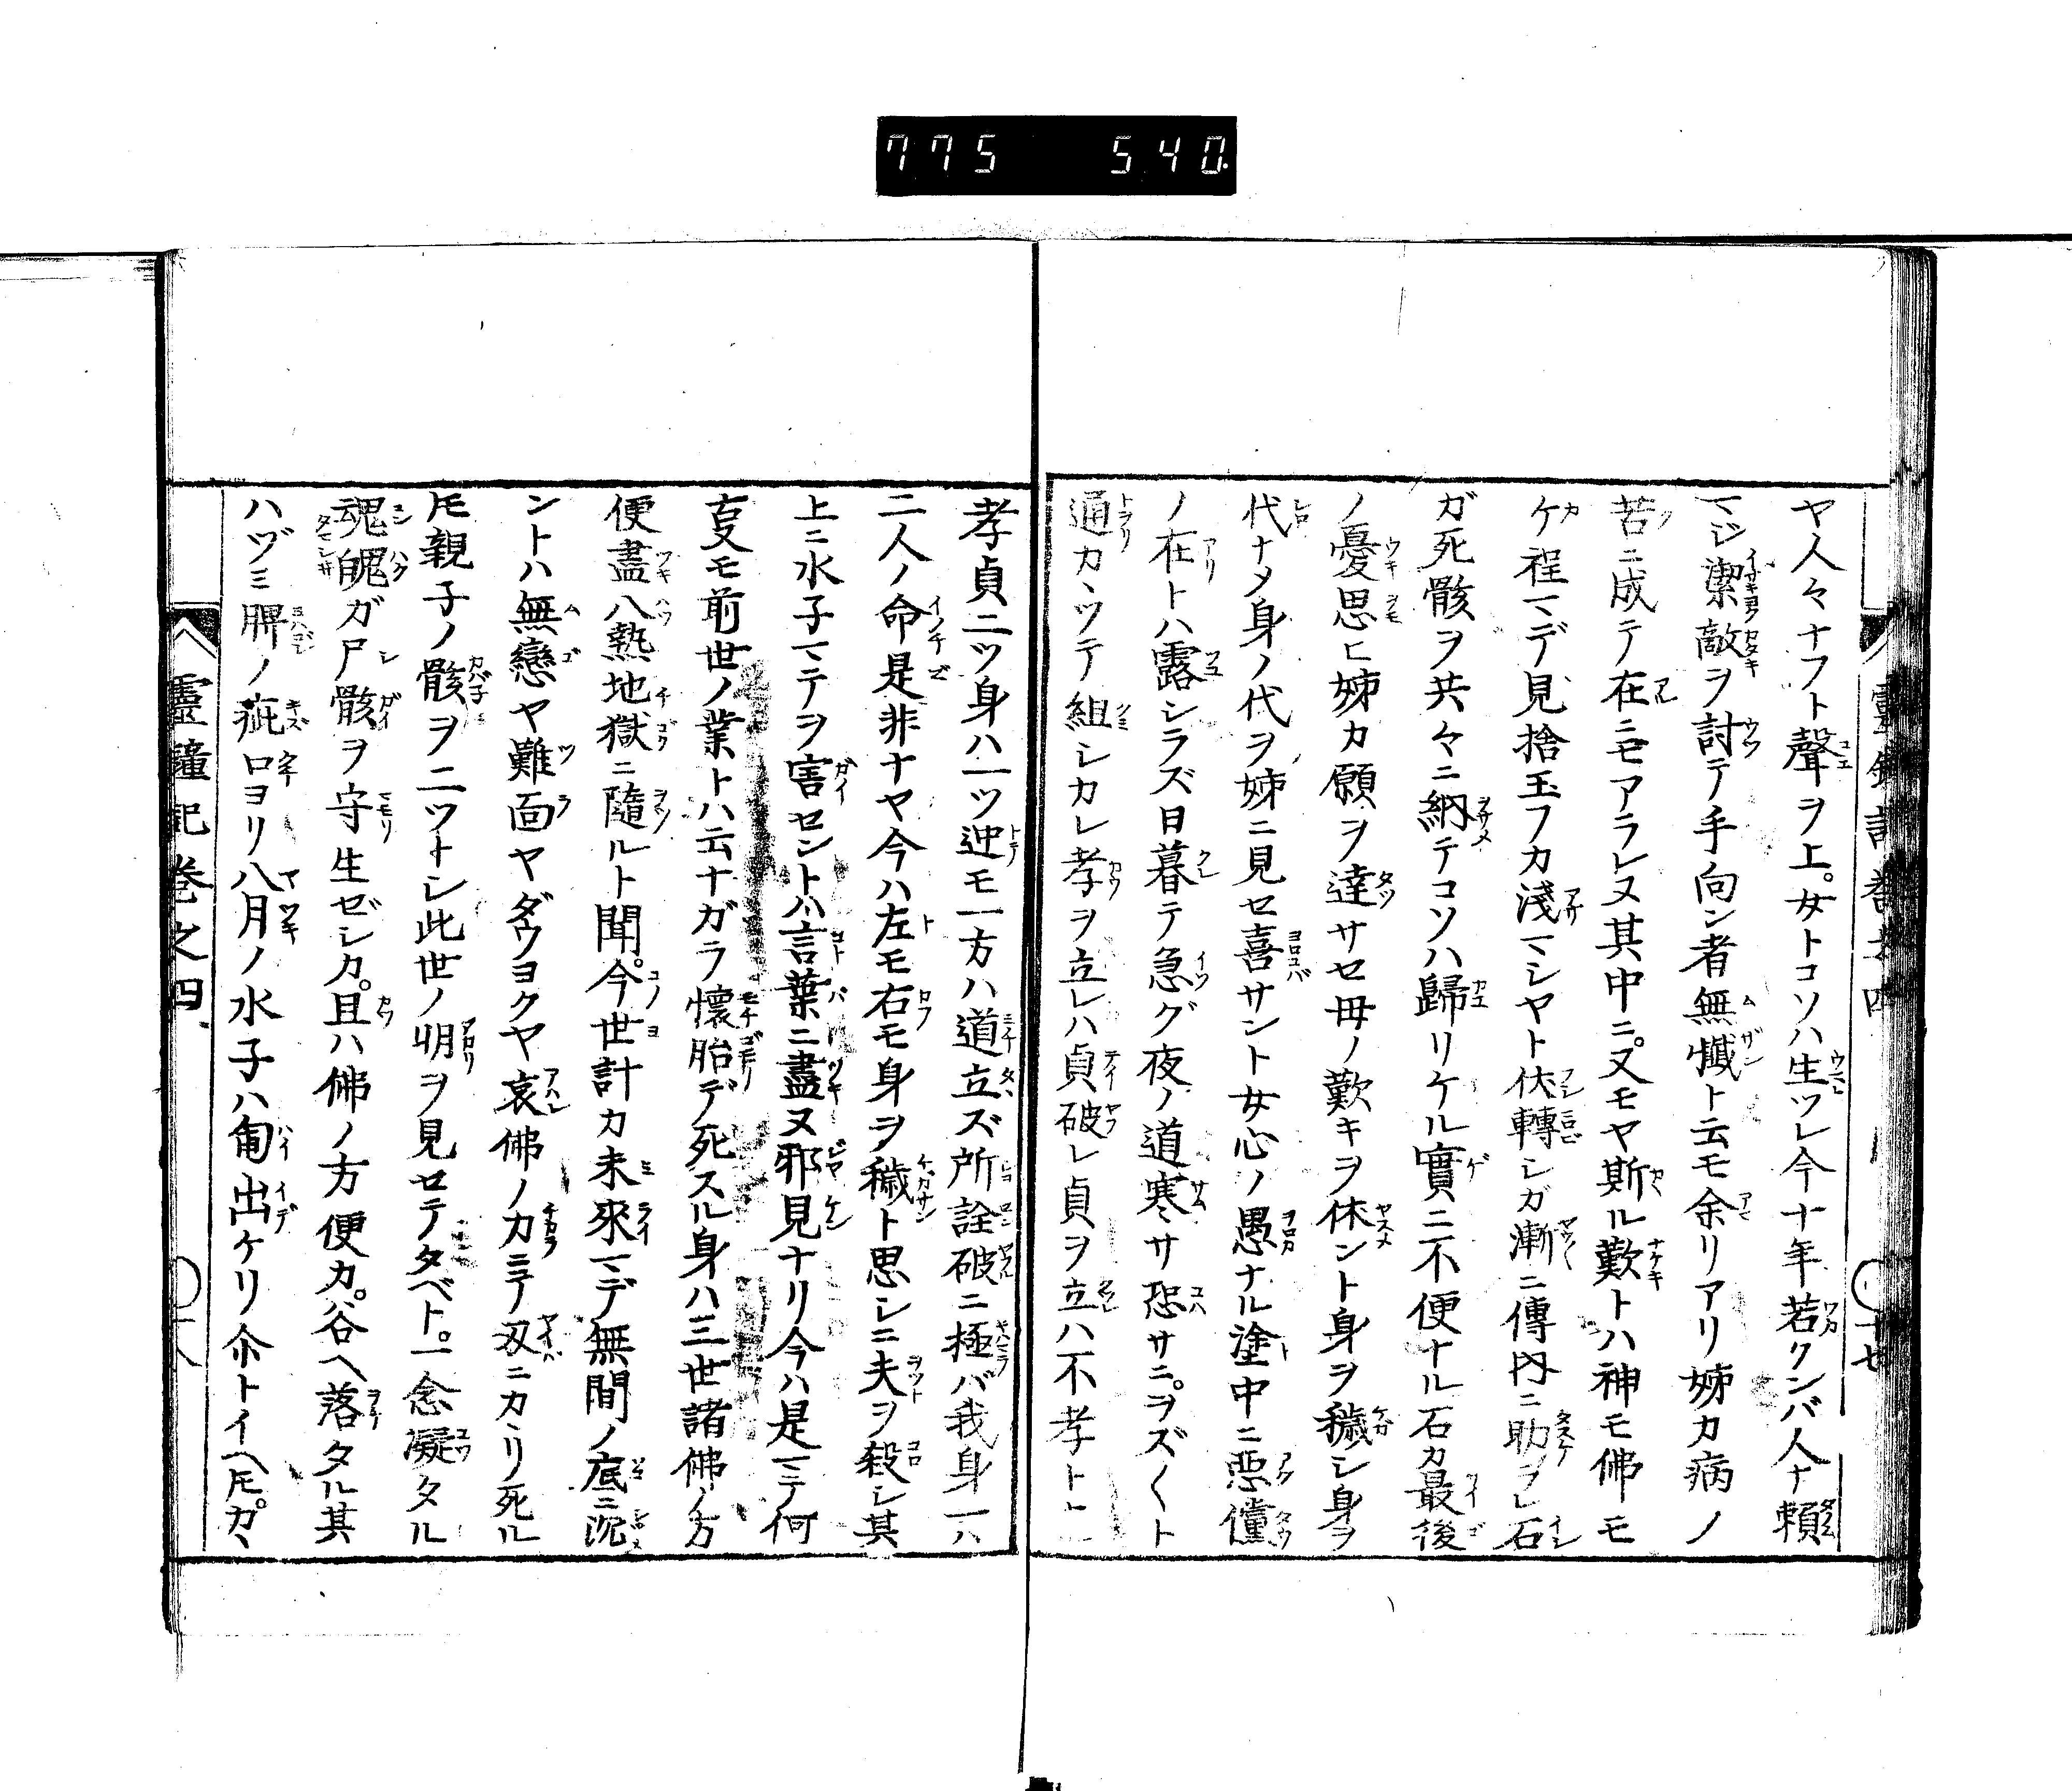 775 540
ヤ人々ナフト聲ヲ上。女トコソハ生ツレ今十年若クンバ人ナ頼
マジ潔敵ヲ討テ手向ン者無慚ト云モ余リアリ姊カ病ノ
苦ニ成テ在ニモアラレヌ其中ニ。又モヤ斯ル歎トハ神モ佛モ
ケ程マデ見捨玉フカ淺マシヤト伏轉シガ漸ニ傳内ニ助ラレ石
ガ死骸ヲ共々ニ納テコソハ歸リケル實ニ不便ナル石カ最後
ノ憂思ヒ姊カ願ヲ達サセ母ノ歎キヲ休ント身ヲ穢シ身ヲ
代ナメ身ノ代ヲ姊ニ見セ喜サント女心ノ愚ナル塗中ニ惡儻
ノ在トハ露シラズ日暮テ急グ夜ノ道寒サ恐サニ。ヲズ〱ト
通カヽツテ組シカレ孝ヲ立レハ貞破レ貞ヲ立ハ不孝トヽ
孝貞二ツ身ハ一ツ迚モ一方ハ道立ズ所詮破ニ極バ我身一ハ
二人ノ命是非ナヤ今ハ左モ右モ身ヲ穢ト思シニ夫ヲ殺シ其
上ニ水子マテヲ害セントハ言葉ニ盡ヌ邪見ナリ今ハ是マテ何
叓モ前世ノ業トハ云ナガラ懷胎デ死スル身ハ三世諸佛ノ方
便盡八熱地獄ニ隨ルト聞。今世計カ未來マデ無間ノ底ニ沉
ントハ無戀ヤ難面ヤダウヨクヤ哀佛ノ力ニテ刄ニカヽリ死ル
𪜈親子ノ骸ヲ二ツトシ此世ノ明ヲ見セテタベト。一念凝タル
魂魄ガ尸骸ヲ守生ゼシカ。且ハ佛ノ方便カ。谷ヘ落タル其
ハヅミ腗ノ疵口ヨリ八月ノ水子ハ匍出ケリ尒トイヘ𪜈。カヽ
靈鐘記巻之四